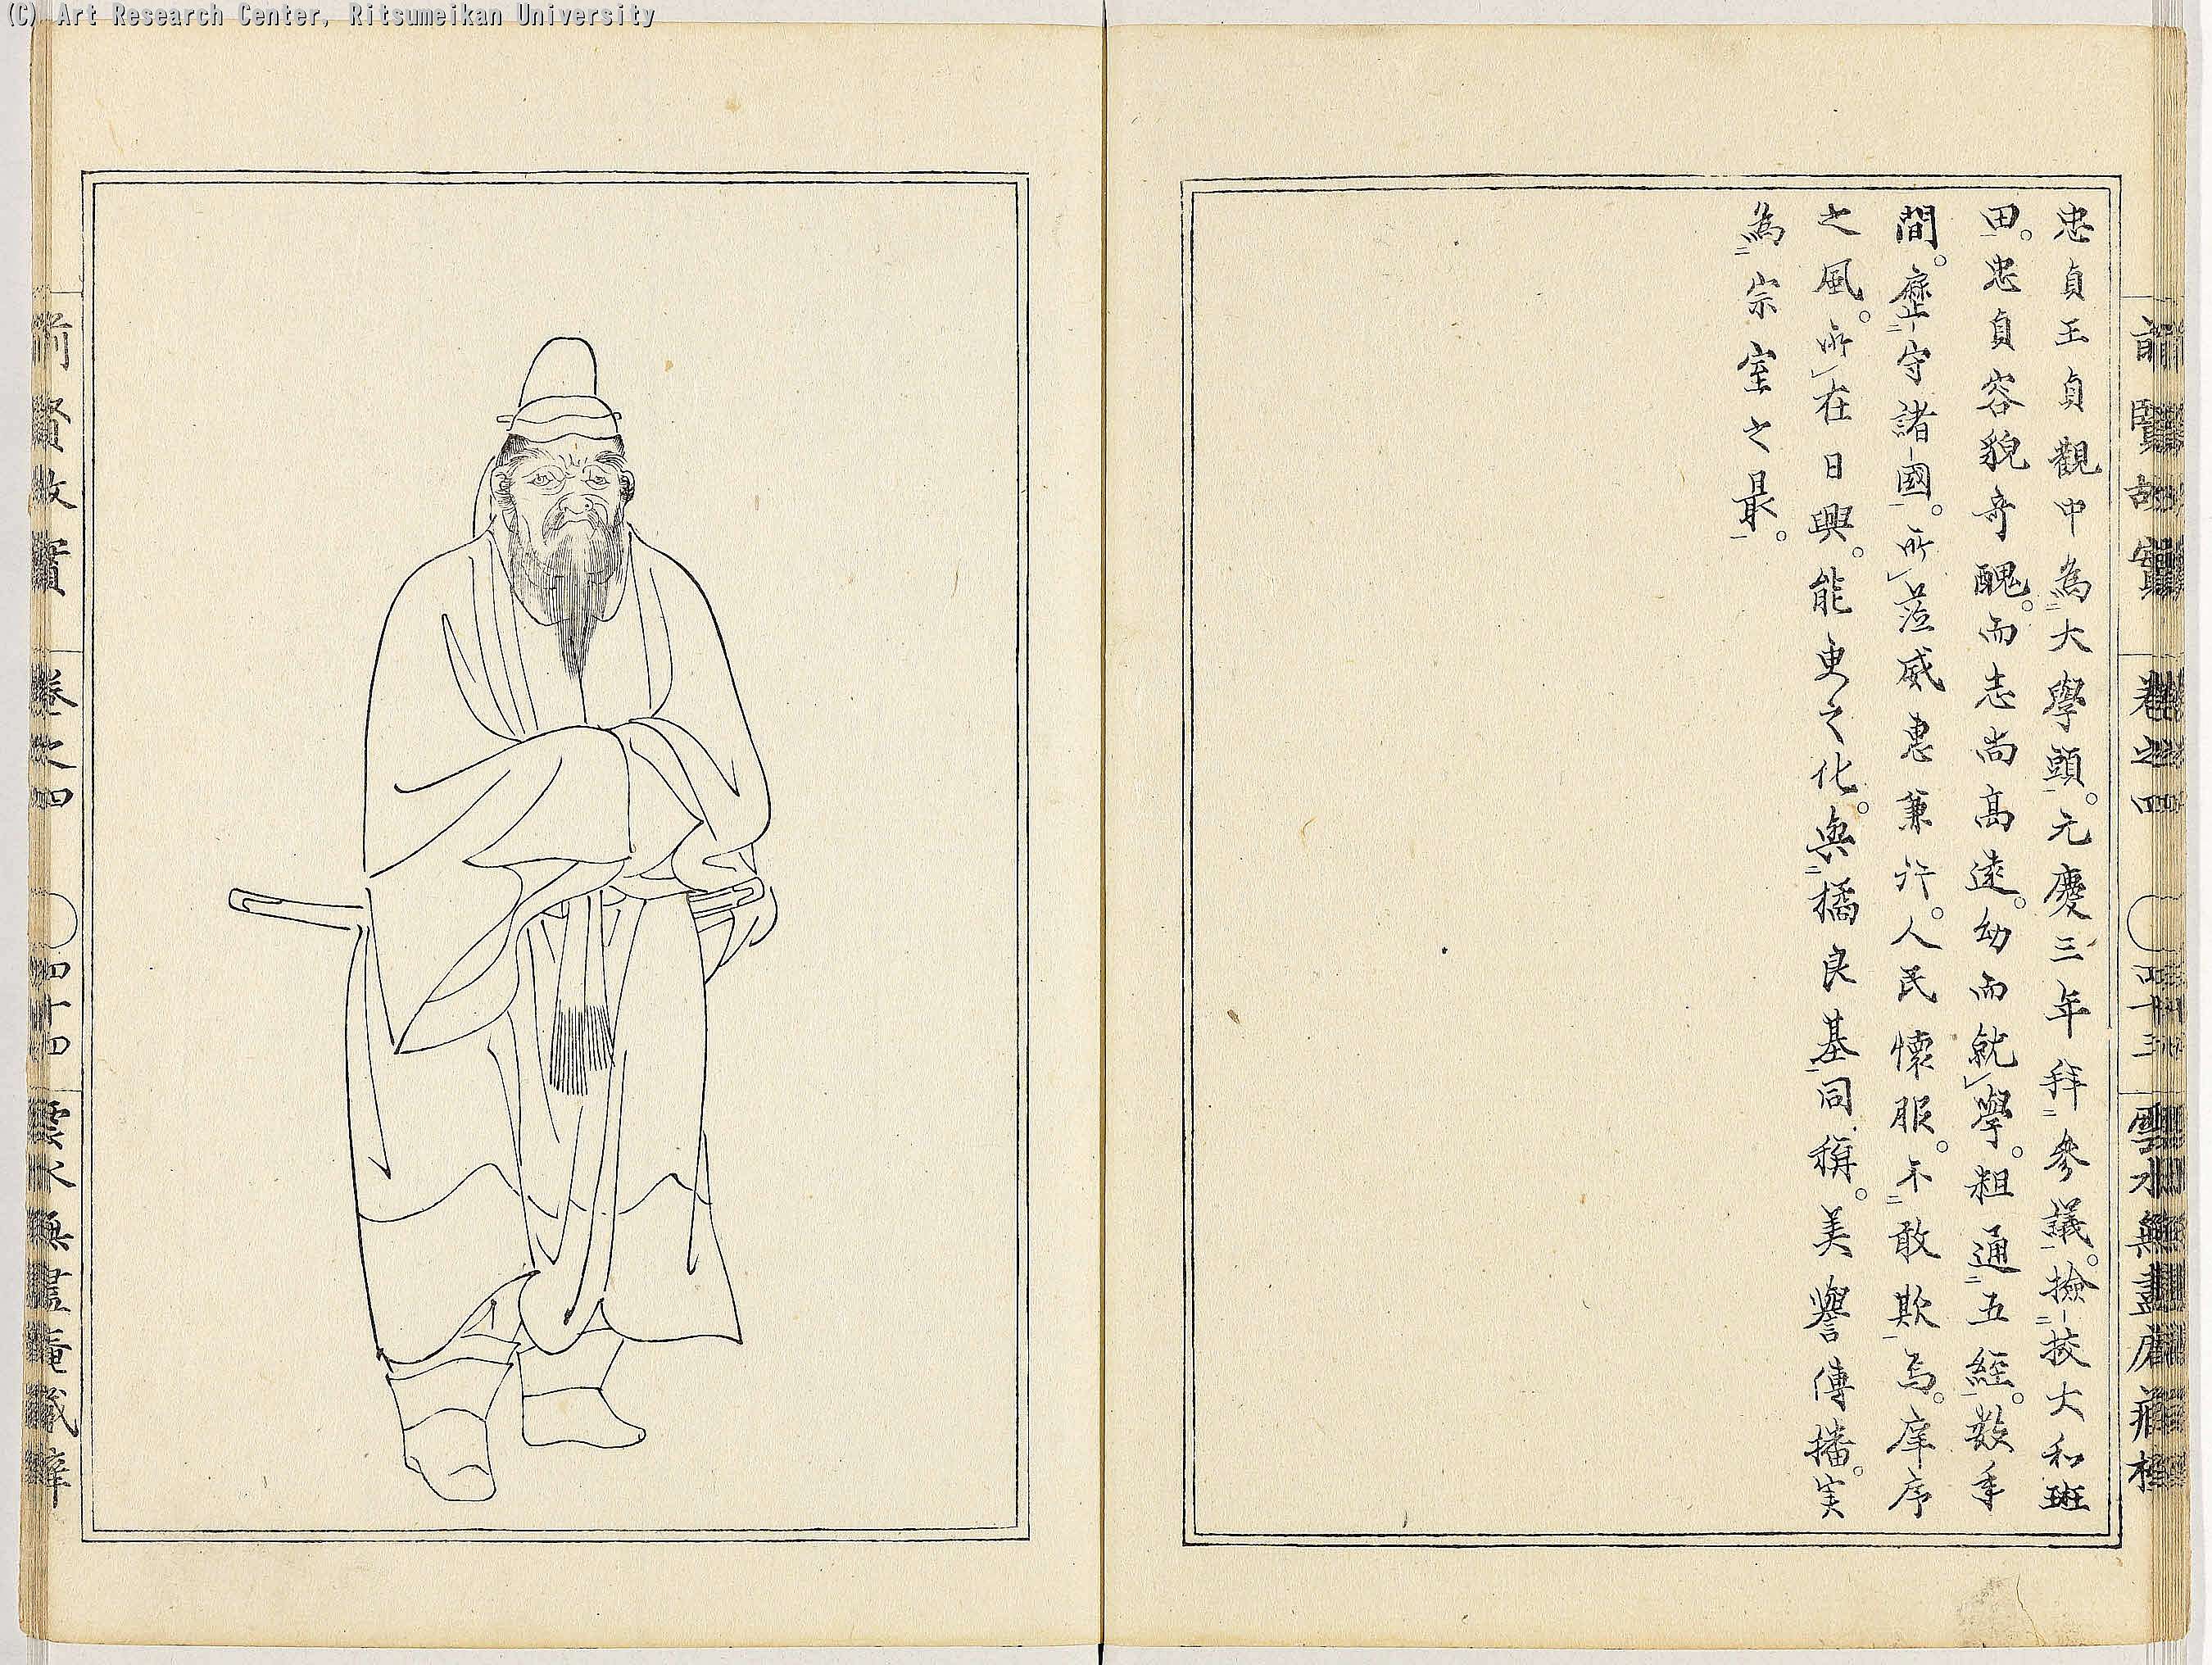 (C) Art Research Center, Ritsumeikan University
前賢故實 卷之四 四十三 雲水無盡庵藏梓
忠貞王貞觀中爲大學頭。元慶三年拜參議。撿挍大和班
田。忠貞容貌奇醜。而志尚高遠。幼而就學。粗通五經。數年
間。歷守諸國。所莅威惠兼行。人民懷服。不敢欺焉。庠序
之風。所在日興。能吏之化。與橘良基同稱。美譽傳播。実
為宗室之最。
前賢故實 卷之四 四十四 雲水無盡庵藏梓